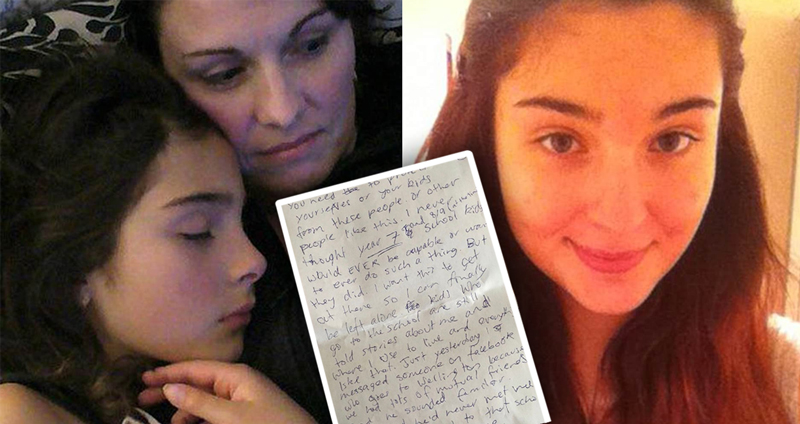 you need to
yourselves or your kids
from these people or other
people like this. I never
thought year 7 school kids
would EVER be capable or want
to ever do such a thing But
they did. I want this to get
out there so I can finally
be left alone kids who
go to the school are still
told stories about me and
where I use to live and everything
like that. Just yesterday I
messaged someone on facebook
who goes to Wellington because
we had lots of mutual friends
and he sounded familiar
he'd never met me
to that school